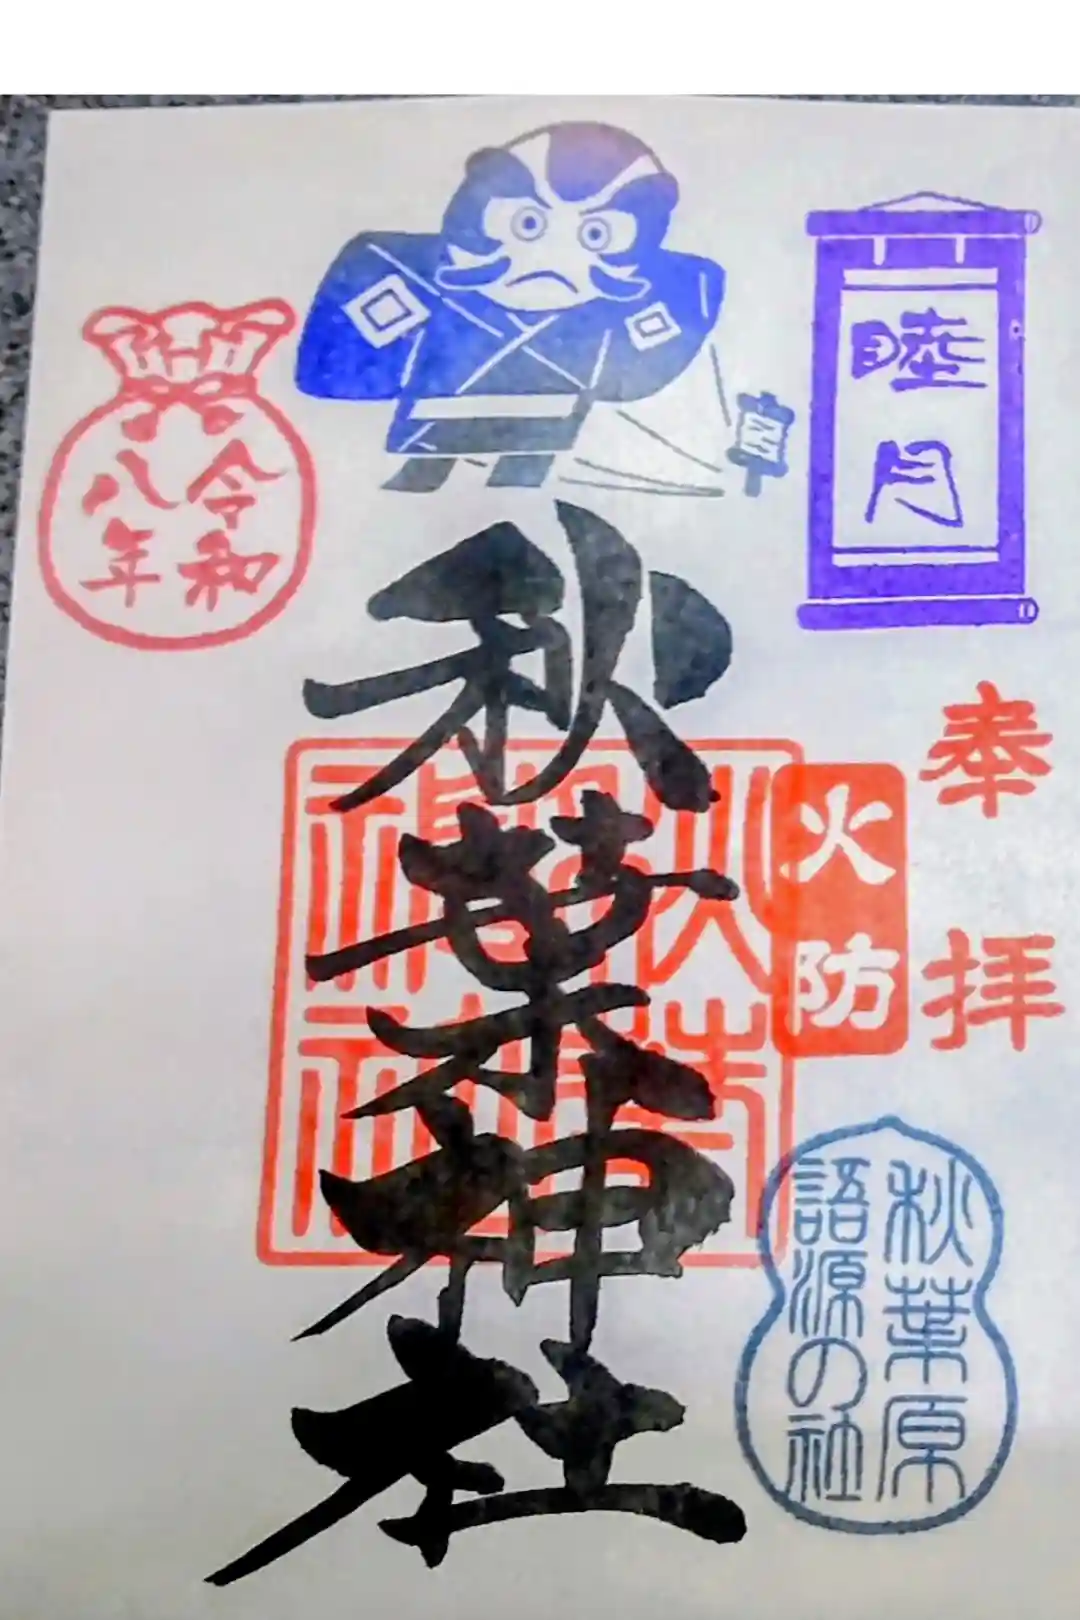 睦月
奉拝
火防
秋葉原
語源の社
秋葉神社
令和
八年